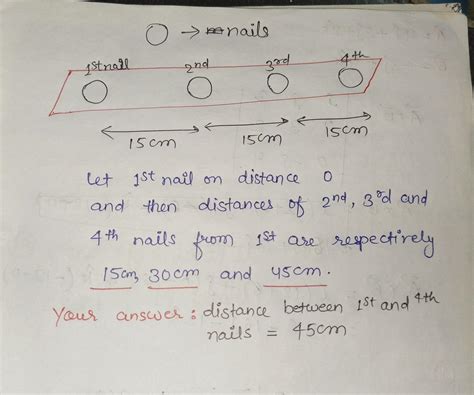 → nails
1st nail 2nd 3rd 4th
15cm 15cm 15cm
Let 1st nail on distance 0
and then distances of 2nd, 3rd and
4th nails from 1st are respectively
15cm, 30cm and 45cm.
Your answer: distance between 1st and 4th
nails = 45cm